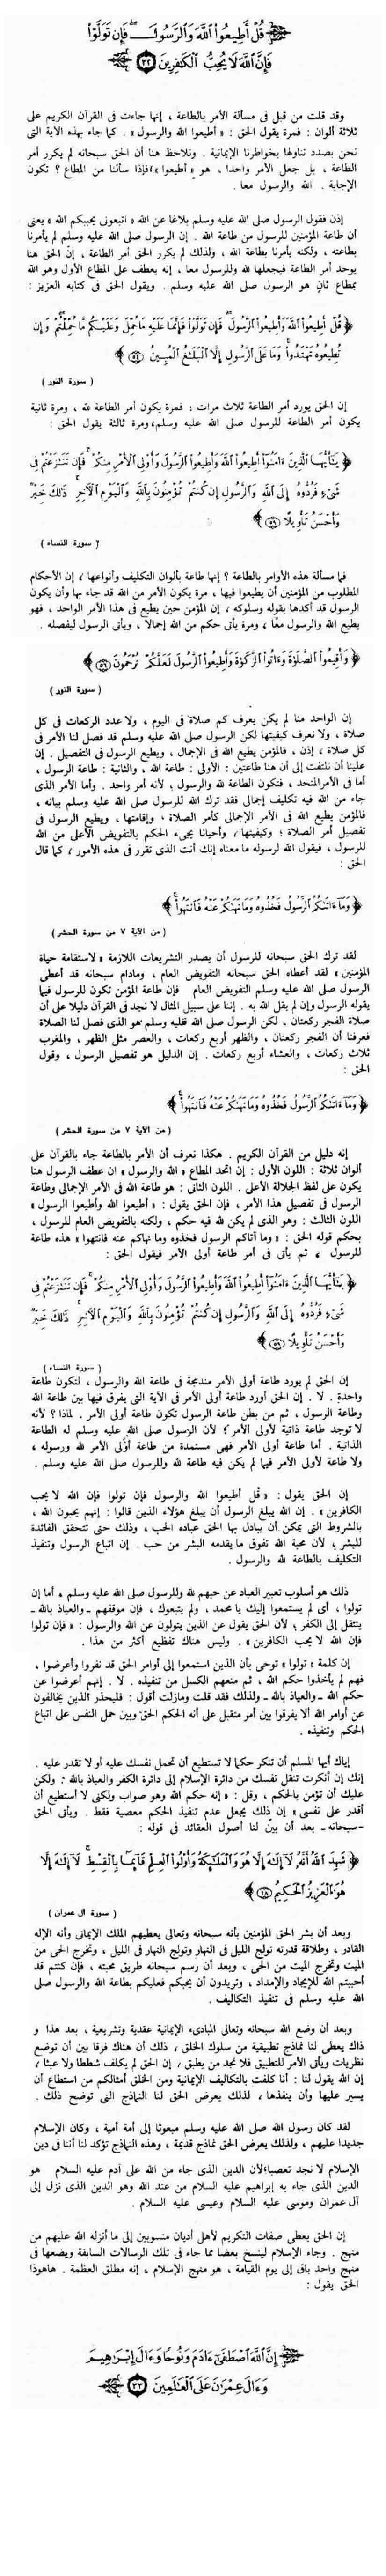 قُلْ أَطِيعُوا۟ ٱللَّهَ وَٱلرَّسُولَ ۖ فَإِن تَوَلَّوْا۟
فَإِنَّ ٱللَّهَ لَا يُحِبُّ ٱلْكَٰفِرِينَ ٣٢
وقد قلت من قبل فى مسألة الأمر بالطاعة ، إنها جاءت فى القرآن الكريم على
ثلاثة ألوان : فمرة يقول الحق : « أطيعوا الله والرسول » . كما جاء بهذه الآية التى
نحن بصدد تناولها بخواطرنا الإيمانية . ونلاحظ هنا أن الحق سبحانه لم يكرر أمر
الطاعة ، بل جعل الأمر واحدا ، هو « أطيعوا » فإذا سألنا من المطاع ؟ تكون
الإجابة . الله والرسول معا .
إذن فقول الرسول صلى الله عليه وسلم بلاغا عن الله « اتبعونى يحببكم الله » يعنى
أن طاعة المؤمنين للرسول من طاعة الله . إن الرسول صلى الله عليه وسلم لم يأمرنا
بطاعته ، ولكنه يأمرنا بطاعة الله ، ولذلك لم يكرر الحق أمر الطاعة ، إنّ الحق هنا
يوحد أمر الطاعة فيجعلها لله وللرسول معا ، إنه يعطف على المطاع الأول وهو الله
بمطاع ثانٍ هو الرسول صلى الله عليه وسلم . ويقول الحق فى كتابه العزيز :
﴿ قُلْ أَطِيعُوا۟ ٱللَّهَ وَأَطِيعُوا۟ ٱلرَّسُولَ ۖ فَإِن تَوَلَّوْا۟ فَإِنَّمَا عَلَيْهِ مَا حُمِّلَ وَعَلَيْكُم مَّا حُمِّلْتُمْ ۖ وَإِن
تُطِيعُوهُ تَهْتَدُوا۟ ۚ وَمَا عَلَى ٱلرَّسُولِ إِلَّا ٱلْبَلَٰغُ ٱلْمُبِينُ ٥٤ ﴾
( سورة النور )
إن الحق يورد أمر الطاعة ثلاث مرات : فمرة يكون أمر الطاعة لله ، ومرة ثانية
يكون أمر الطاعة للرسول صلى الله عليه وسلم، ومرة ثالثة يقول الحق :
﴿ يَٰٓأَيُّهَا ٱلَّذِينَ ءَامَنُوٓا۟ أَطِيعُوا۟ ٱللَّهَ وَأَطِيعُوا۟ ٱلرَّسُولَ وَأُو۟لِى ٱلْأَمْرِ مِنكُمْ ۖ فَإِن تَنَٰزَعْتُمْ فِى
شَىْءٍ فَرُدُّوهُ إِلَى ٱللَّهِ وَٱلرَّسُولِ إِن كُنتُمْ تُؤْمِنُونَ بِٱللَّهِ وَٱلْيَوْمِ ٱلْـَٔاخِرِ ۚ ذَٰلِكَ خَيْرٌ
وَأَحْسَنُ تَأْوِيلًا ٥٩ ﴾
( سورة النساء )
فما مسألة هذه الأوامر بالطاعة ؟ إنها طاعة بألوان التكليف وأنواعها ، إن الأحكام
المطلوب من المؤمنين أن يطيعوا فيها ، مرة يكون الأمر من الله قد جاء بها وأن يكون
الرسول قد أكدها بقوله وسلوكه ، إن المؤمن حين يطيع فى هذا الأمر الواحد ، فهو
يطيع الله والرسول معًا ، ومرة يأتى حكم من الله إجمالًا ، ويأتى الرسول ليفصله .
﴿ وَأَقِيمُوا۟ ٱلصَّلَوٰةَ وَءَاتُوا۟ ٱلزَّكَوٰةَ وَأَطِيعُوا۟ ٱلرَّسُولَ لَعَلَّكُمْ تُرْحَمُونَ ٥٦ ﴾
( سورة النور )
إن الواحد منا لم يكن يعرف كم صلاة فى اليوم ، ولا عدد الركعات فى كل
صلاة ، ولا نعرف كيفيتها لكن الرسول صلى الله عليه وسلم قد فصل لنا الأمر فى
كل صلاة ، إذن ، فالمؤمن يطيع الله فى الإجمال ، ويطيع الرسول فى التفصيل . إن
علينا أن نلتفت إلى أن هنا طاعتين : الأولى : طاعة الله ، والثانية : طاعة الرسول ،
أما فى الأمر المتحد ، فتكون الطاعة لله والرسول ؛ لأنه أمر واحد . وأما الأمر الذى
جاء من الله فيه تكليف إجمالى فقد ترك الله للرسول صلى الله عليه وسلم بيانه ،
فالمؤمن يطيع الله فى الأمر الإجمالى كأمر الصلاة ، وإقامتها ، ويطيع الرسول فى
تفصيل أمر الصلاة ؛ وكيفيتها ، وأحيانا يجىء الحكم بالتفويض الأعلى من الله
للرسول ، فيقول الله لرسوله ما معناه إنك أنت الذى تقرر فى هذه الأمور ، كما قال
الحق :
﴿ وَمَآ ءَاتَىٰكُمُ ٱلرَّسُولُ فَخُذُوهُ وَمَا نَهَىٰكُمْ عَنْهُ فَٱنتَهُوا۟ ۚ ﴾
( من الآية ٧ من سورة الحشر )
لقد ترك الحق سبحانه للرسول أن يصدر التشريعات اللازمة « لاستقامة حياة
المؤمنين » لقد أعطاه الحق سبحانه التفويض العام ، ومادام سبحانه قد أعطى
الرسول صلى الله عليه وسلم التفويض العام فإن طاعة المؤمن تكون للرسول فيما
يقوله الرسول وإن لم يقل الله به . إننا على سبيل المثال لا نجد فى القرآن دليلا على أن
صلاة الفجر ركعتان ، لكن الرسول صلى الله عليه وسلم هو الذى فصل لنا الصلاة
فعرفنا أن الفجر ركعتان ، والظهر أربع ركعات ، والعصر مثل الظهر ، والمغرب
ثلاث ركعات ، والعشاء أربع ركعات . إن الدليل هو تفصيل الرسول ، وقول
الحق :
﴿ وَمَآ ءَاتَىٰكُمُ ٱلرَّسُولُ فَخُذُوهُ وَمَا نَهَىٰكُمْ عَنْهُ فَٱنتَهُوا۟ ۚ ﴾
( من الآية ٧ من سورة الحشر )
إنه دليل من القرآن الكريم . هكذا نعرف أن الأمر بالطاعة جاء بالقرآن على
ألوان ثلاثة : اللون الأول : إن اتحد المطاع « الله والرسول » إن عطف الرسول هنا
يكون على لفظ الجلالة الأعلى . اللون الثانى : هو طاعة الله فى الأمر الإجمالى وطاعة
الرسول فى تفصيل هذا الأمر ، فإن الحق يقول : « أطيعوا الله وأطيعوا الرسول »
اللون الثالث : وهو الذى لم يكن لله فيه حكم ، ولكنه بالتفويض العام للرسول ،
بحكم قوله الحق : « وما آتاكم الرسول فخذوه وما نهاكم عنه فانتهوا » هذه طاعة
للرسول ، ثم يأتى فى أمر طاعة أولى الأمر فيقول الحق :
﴿ يَٰٓأَيُّهَا ٱلَّذِينَ ءَامَنُوٓا۟ أَطِيعُوا۟ ٱللَّهَ وَأَطِيعُوا۟ ٱلرَّسُولَ وَأُو۟لِى ٱلْأَمْرِ مِنكُمْ ۖ فَإِن تَنَٰزَعْتُمْ فِى
شَىْءٍ فَرُدُّوهُ إِلَى ٱللَّهِ وَٱلرَّسُولِ إِن كُنتُمْ تُؤْمِنُونَ بِٱللَّهِ وَٱلْيَوْمِ ٱلْـَٔاخِرِ ۚ ذَٰلِكَ خَيْرٌ
وَأَحْسَنُ تَأْوِيلًا ٥٩ ﴾
( سورة النساء )
إن الحق لم يورد طاعة أولى الأمر مندمجة فى طاعة الله والرسول ، لتكون طاعة
واحدة . لا . إن الحق أورد طاعة أولى الأمر فى الآية التى يفرق فيها بين طاعة الله
وطاعة الرسول ، ثم من بطن طاعة الرسول تكون طاعة أولى الأمر . لماذا ؟ لأنه
لا توجد طاعة ذاتية لأولى الأمر ؛ لأن الرسول صلى الله عليه وسلم له الطاعة
الذاتية . أما طاعة أولى الأمر فهى مستمدة من طاعة أولى الأمر لله ورسوله ،
ولا طاعة لأولى الأمر فيما لم يكن فيه طاعة لله وللرسول صلى الله عليه وسلم .
إن الحق يقول : « قُل أطيعوا الله والرسول فإن تولوا فإن الله لا يحب
الكافرين » . إن الله يبلغ الرسول أن يبلغ هؤلاء الذين قالوا : إنهم يحبون الله ،
بالشروط التى يمكن أن يبادل بها الحق عباده الحب ، وذلك حتى تتحقق الفائدة
للبشر ؛ لأن محبة الله تفوق ما يقدمه البشر من حب . إن اتباع الرسول وتنفيذ
التكليف بالطاعة لله والرسول .
ذلك هو أسلوب تعبير العباد عن حبهم لله وللرسول صلى الله عليه وسلم ، أما إن
تولوا ، أى لم يستمعوا إليك يا محمد ، ولم يتبعوك ، فإن موقفهم ـ والعياذ بالله ـ
ينتقل إلى الكفر ؛ لأن الحق يقول عن الذين يتولون عن الله والرسول : « فإن تولوا
فإن الله لا يحب الكافرين » . وليس هناك تفظيع أكثر من هذا .
إن كلمة « تولوا » توحى بأن الذين استمعوا إلى أوامر الحق قد نفروا وأعرضوا ،
فهم لم يأخذوا حكم الله ، ثم منعهم الكسل من تنفيذه . لا . إنهم أعرضوا عن
حكم الله ـ والعياذ بالله ـ ولذلك فقد قلت ومازلت أقول : فليحذر الذين يخالفون
عن أوامر الله ألا يفرقوا بين أمر متقبل على أنه الحكم الحق وبين حمل النفس على اتباع
الحكم وتنفيذه .
إياك أيها المسلم أن تنكر حكما لا تستطيع أن تحمل نفسك عليه أو لا تقدر عليه .
إنك إن أنكرت تنقل نفسك من دائرة الإسلام إلى دائرة الكفر والعياذ بالله ؛ ولكن
عليك أن تؤمن بالحكم ، وقل : « إنه حكم الله وهو صواب ولكنى لا أستطيع أن
أقدر على نفسى » إن ذلك يجعل عدم تنفيذ الحكم معصية فقط . ويأتى الحق
ـ سبحانه ـ بعد أن بيّن لنا أصول العقائد فى قوله :
﴿ شَهِدَ ٱللَّهُ أَنَّهُۥ لَآ إِلَٰهَ إِلَّا هُوَ وَٱلْمَلَٰٓئِكَةُ وَأُو۟لُوا۟ ٱلْعِلْمِ قَآئِمًۢا بِٱلْقِسْطِ ۚ لَآ إِلَٰهَ إِلَّا
هُوَ ٱلْعَزِيزُ ٱلْحَكِيمُ ١٨ ﴾
( سورة آل عمران )
وبعد أن بشر الحق المؤمنين بأنه سبحانه وتعالى يعطيهم الملك الإيمانى وأنه الإله
القادر ، وطلاقة قدرته تولج الليل فى النهار وتولج النهار فى الليل ، وتخرج الحى من
الميت وتخرج الميت من الحى ، وبعد أن رسم سبحانه طريق محبته ، فإن كنتم قد
أحببتم الله للإيجاد والإمداد ، وتريدون أن يحبكم فعليكم بطاعة الله والرسول صلى
الله عليه وسلم فى تنفيذ التكاليف .
وبعد أن وضع الله سبحانه وتعالى المبادىء الإيمانية عقدية وتشريعية ، بعد هذا و
ذاك يعطى لنا نماذج تطبيقية من سلوك الخلق ، ذلك أن هناك فرقا بين أن توضع
نظريات ويأتى الأمر للتطبيق فلا تجد من يطبق ، إن الحق لم يكلف شططا ولا عبثا ،
إن الله يقول لنا : أنا كلفت بالتكاليف الإيمانية ومن الخلق أمثالكم من استطاع أن
يسير عليها وأن ينفذها ، لذلك يعرض الحق لنا النماذج التى توضح ذلك .
لقد كان رسول الله صلى الله عليه وسلم مبعوثا إلى أمة أمية ، وكان الإسلام
جديدا عليهم ، ولذلك يعرض الحق نماذج قديمة ، وهذه النماذج تؤكد لنا أننا فى دين
الإسلام لا نجد تعصبا ؛ لأن الدين الذى جاء من الله على آدم عليه السلام هو
الدين الذى جاء به إبراهيم عليه السلام من عند الله وهو الدين الذى نزل إلى
آل عمران وموسى عليه السلام وعيسى عليه السلام .
إن الحق يعطى صفات التكريم لأهل أديان منسوبين إلى ما أنزله الله عليهم من
منهج . وجاء الإسلام لينسخ بعضا مما جاء فى تلك الرسالات السابقة ويضعها فى
منهج واحد باق إلى يوم القيامة ، هو منهج الإسلام ، إنه مطلق العظمة . هاهوذا
الحق يقول :
إِنَّ ٱللَّهَ ٱصْطَفَىٰٓ ءَادَمَ وَنُوحًا وَءَالَ إِبْرَٰهِيمَ
وَءَالَ عِمْرَٰنَ عَلَى ٱلْعَٰلَمِينَ ٣٣